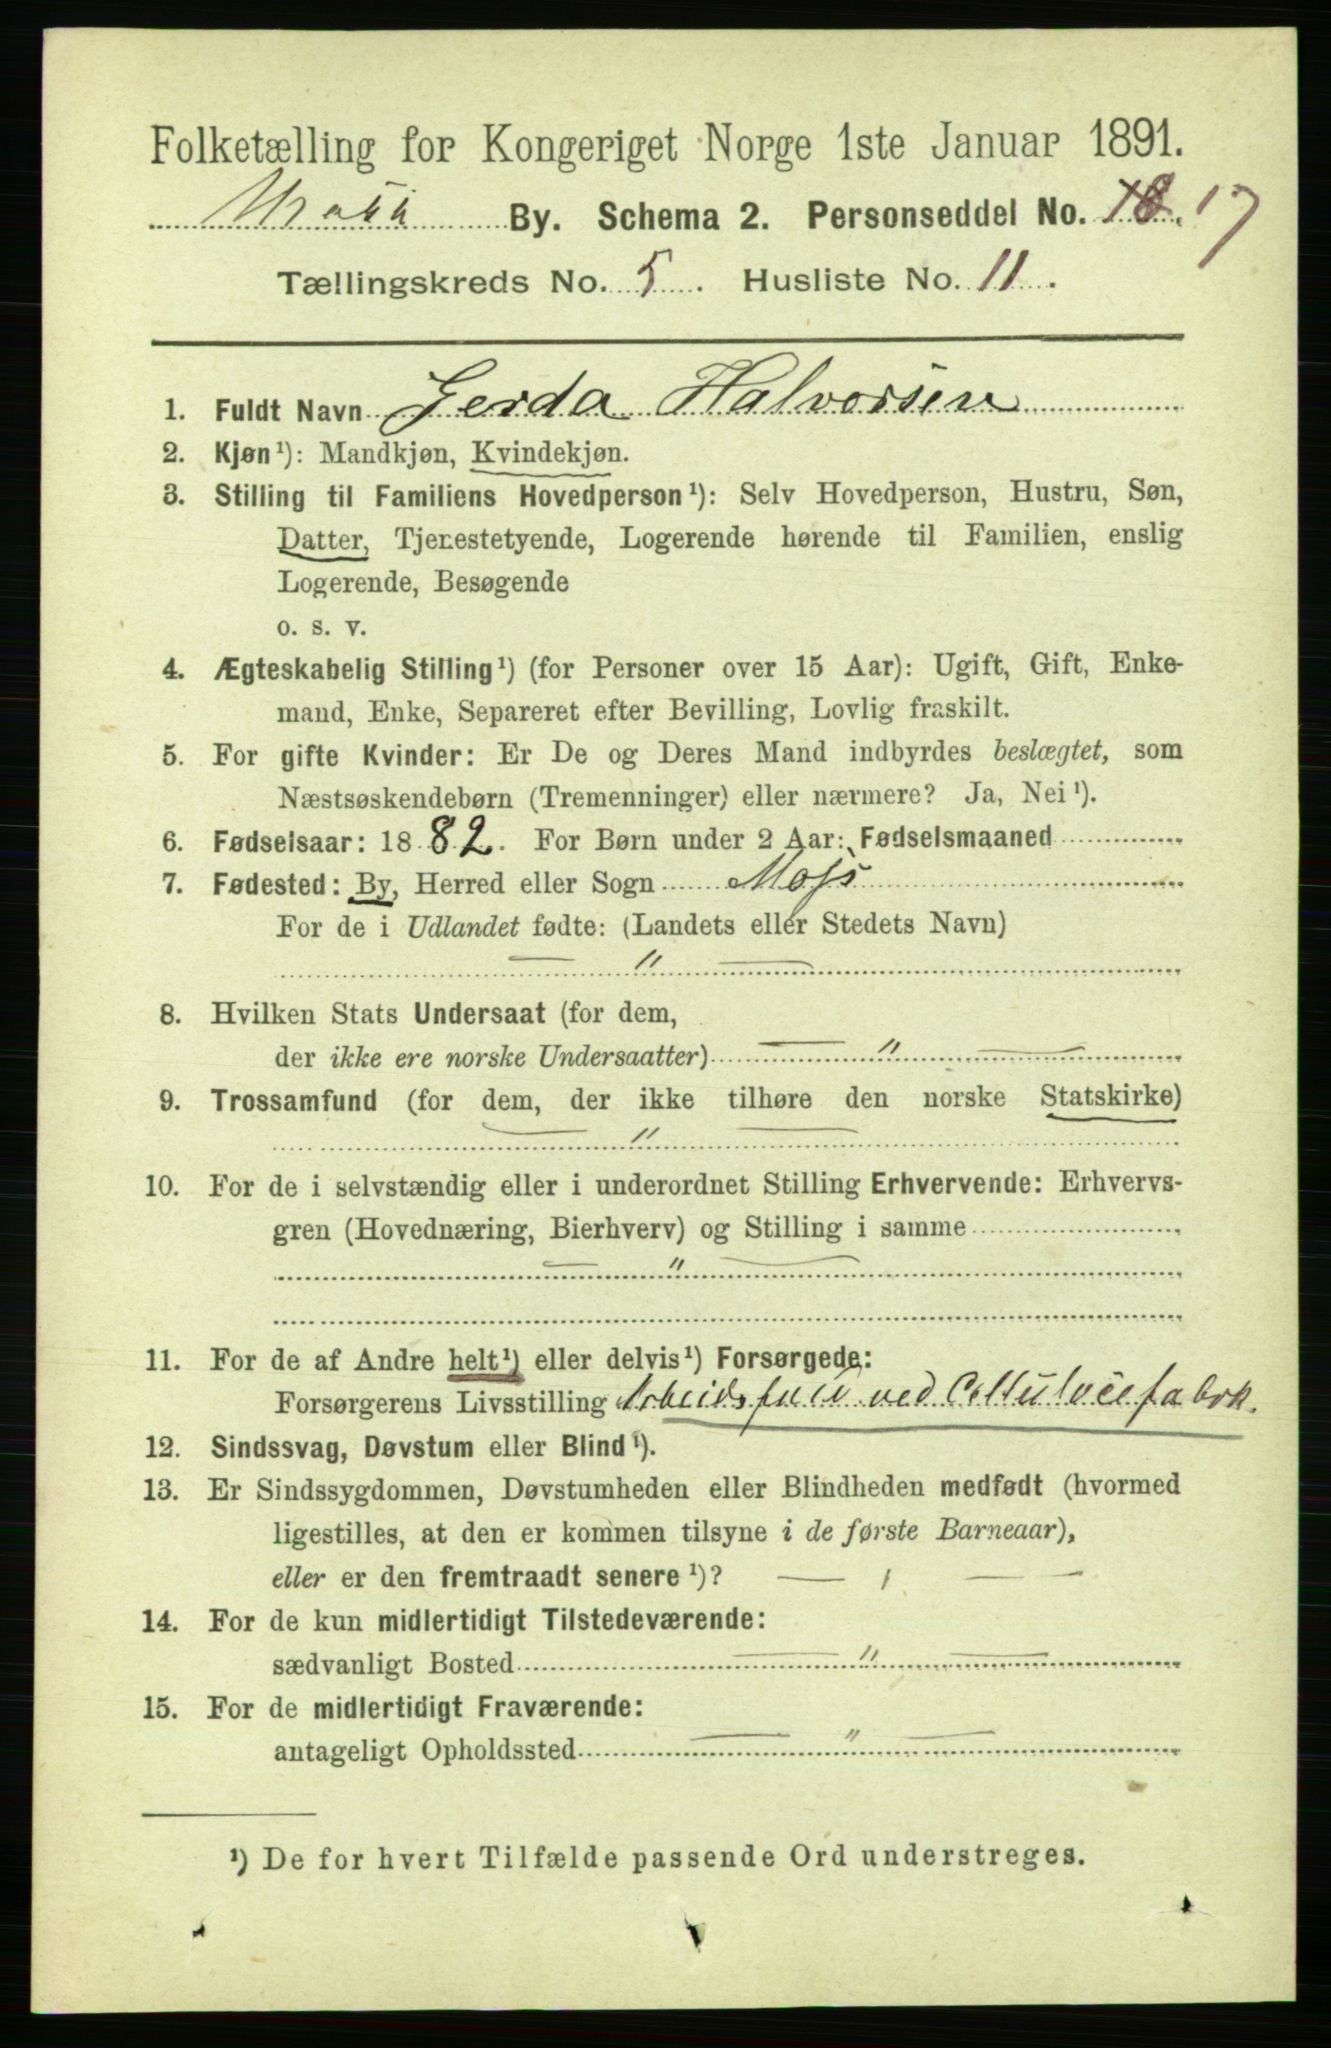 Folketælling for Kongeriget Norge 1ste Januar 1891.
Moss By. Schema 2. Personseddel No. 18. 17
Tællingskreds No. 5. Husliste No. 11.
1. Fuldt Navn Gerda Halvorsen
2. Kjøn¹): Mandkjøn, Kvindekjøn.
3. Stilling til Familiens Hovedperson¹): Selv Hovedperson, Hustru, Søn,
Datter, Tjenestetyende, Logerende hørende til Familien, enslig
Logerende, Besøgende
o. s. v.
4. Ægteskabelig Stilling¹) (for Personer over 15 Aar): Ugift, Gift, Enke-
mand, Enke, Separeret efter Bevilling, Lovlig fraskilt.
5. For gifte Kvinder: Er De og Deres Mand indbyrdes beslægtet, som
Næstsøskendebørn (Tremenninger) eller nærmere? Ja, Nei¹).
6. Fødselsaar: 1882. For Børn under 2 Aar: Fødselsmaaned
7. Fødested: By, Herred eller Sogn Moss
For de i Udlandet fødte: (Landets eller Stedets Navn)
— " —
8. Hvilken Stats Undersaat (for dem,
der ikke ere norske Undersaatter) — " —
9. Trossamfund (for dem, der ikke tilhøre den norske Statskirke)
— " —
10. For de i selvstændig eller i underordnet Stilling Erhvervende: Erhvervs-
gren (Hovednæring, Bierhverv) og Stilling i samme
— " —
11. For de af Andre helt¹) eller delvis¹) Forsørgede:
Forsørgerens Livsstilling ved
12. Sindssvag, Døvstum eller Blind¹).
13. Er Sindssygdommen, Døvstumheden eller Blindheden medfødt (hvormed
ligestilles, at den er kommen tilsyne i de første Barneaar),
eller er den fremtraadt senere¹)? — ı —
14. For de kun midlertidigt Tilstedeværende:
sædvanligt Bosted — " —
15. For de midlertidigt Fraværende:
antageligt Opholdssted — " —
¹) De for hvert Tilfælde passende Ord understreges.